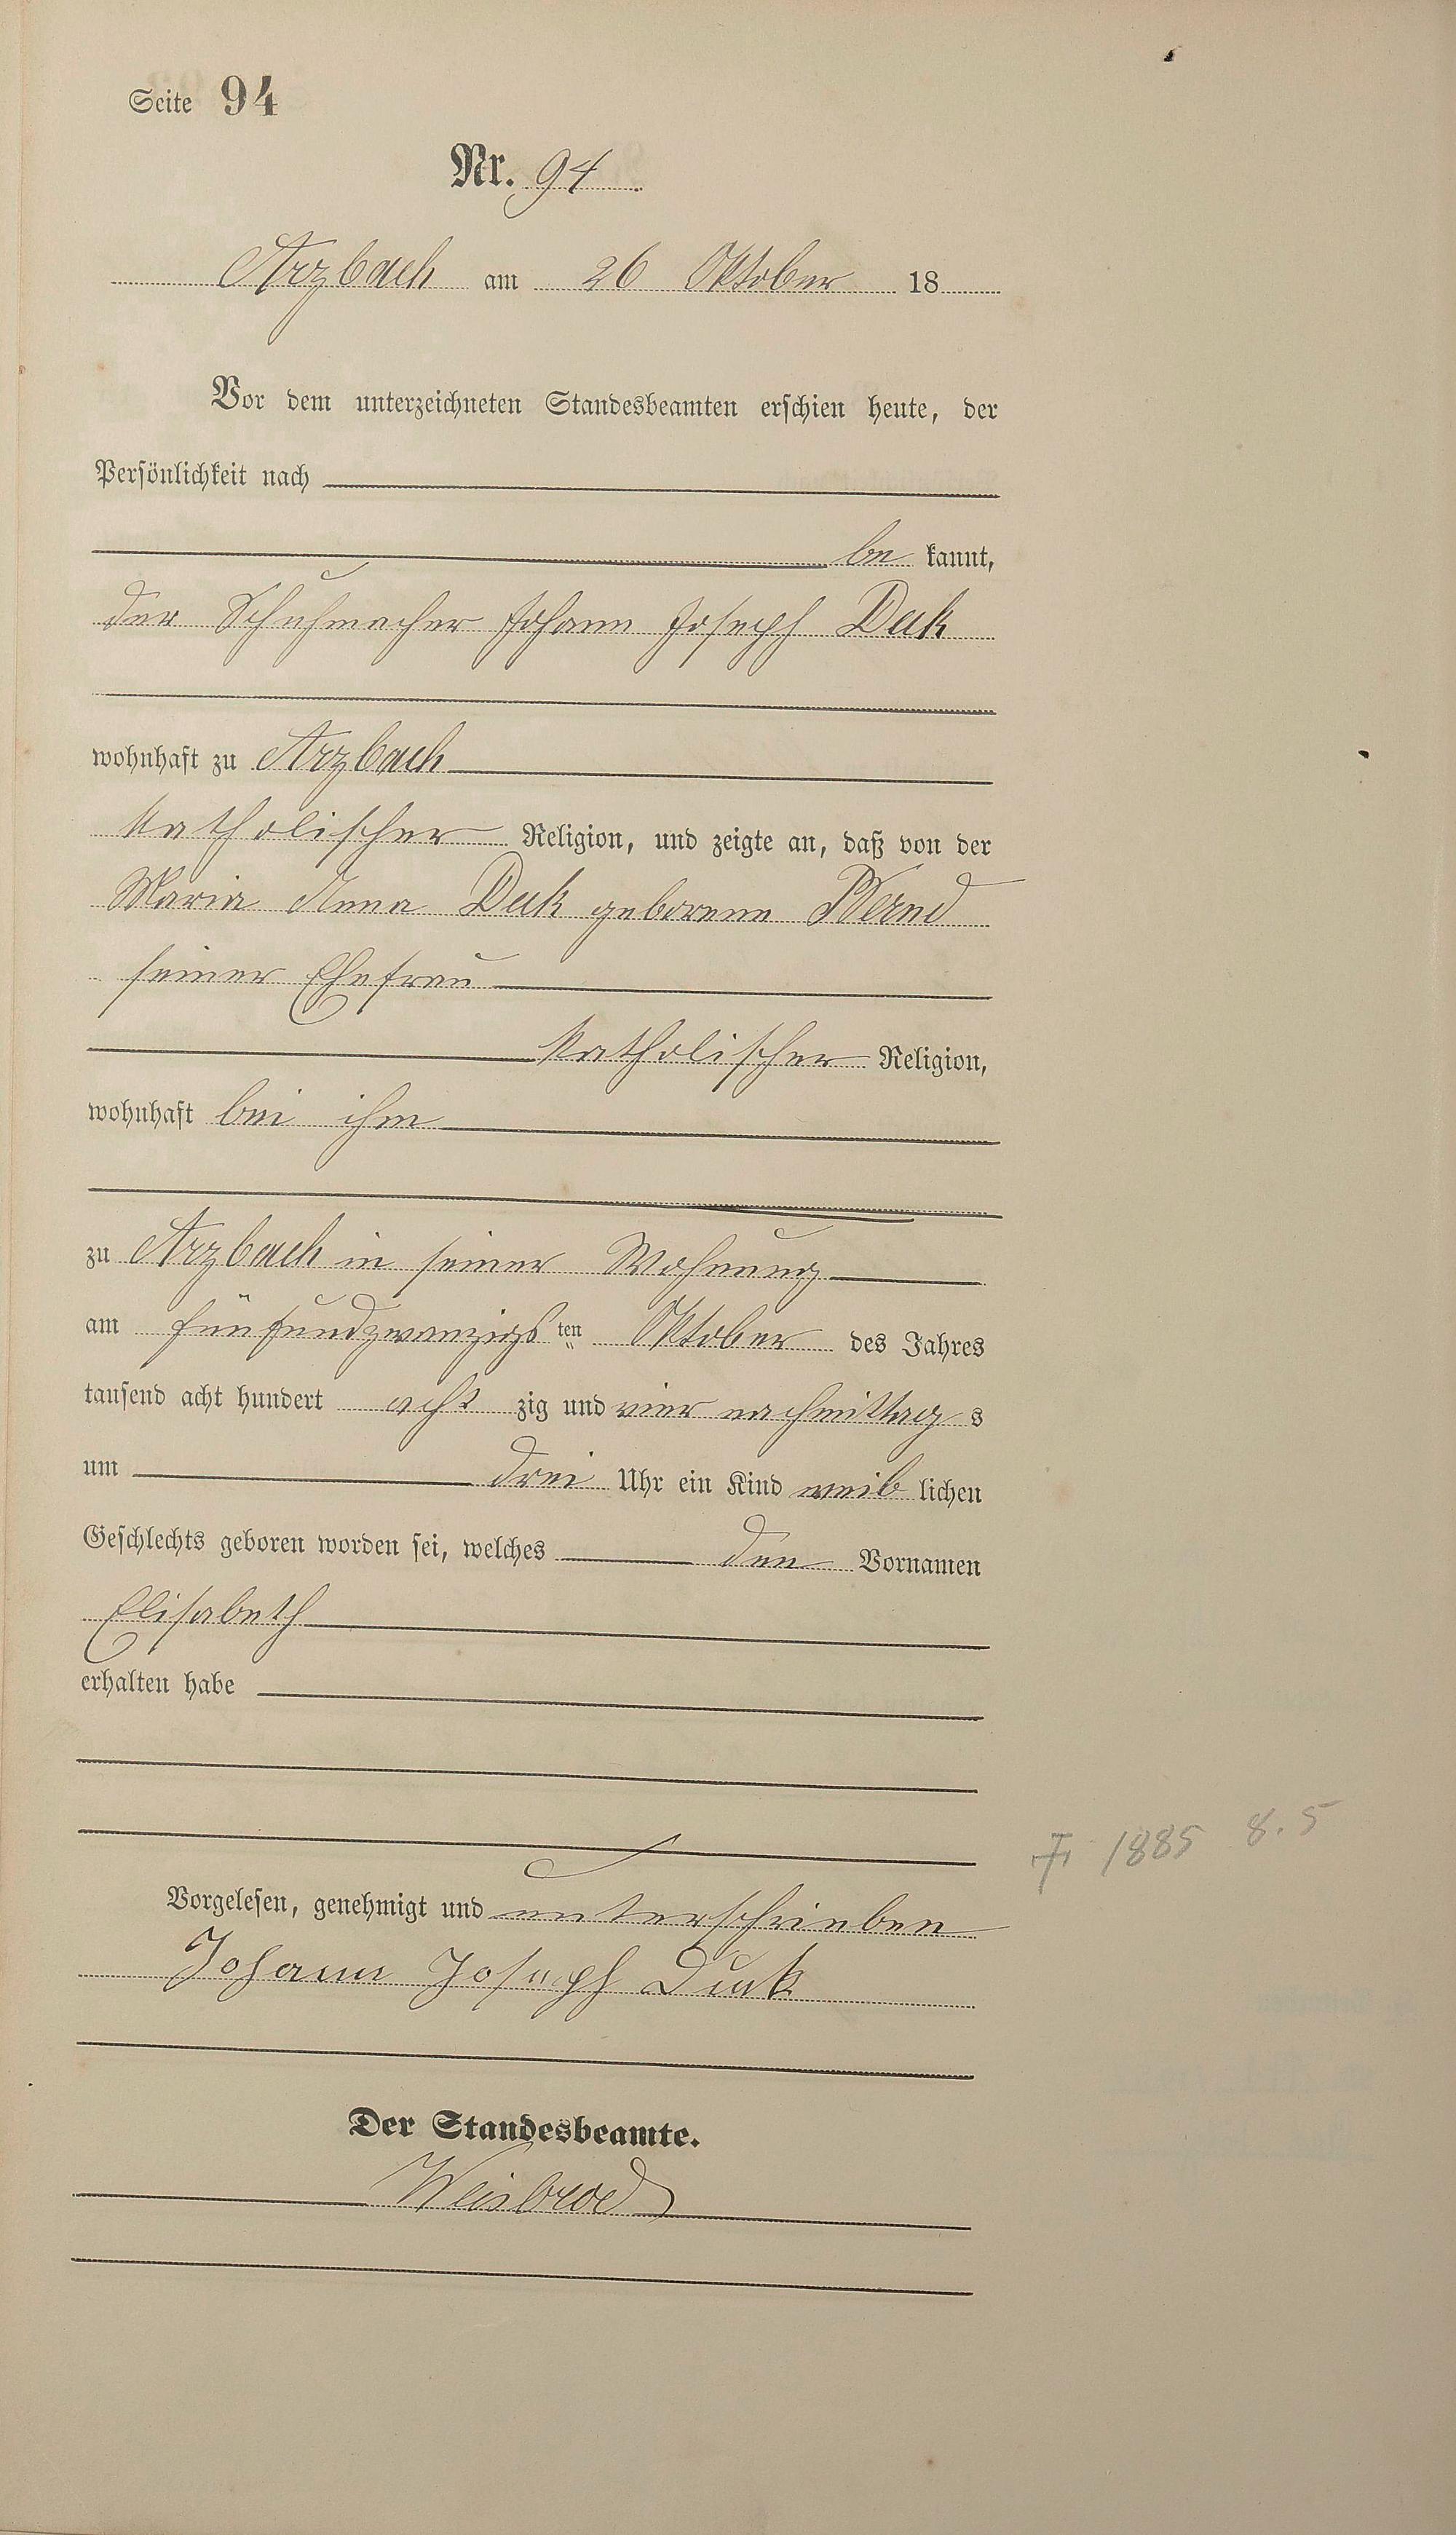 Seite 94
Nr. 94
Arzbach am 26 Oktober 18
Vor dem unterzeichneten Standesbeamten erschien heute, der
Persönlichkeit nach
be kannt,
der Schuhmacher Johann Joseph
wohnhaft zu Arzbach
katholischer Religion, und zeigte an, daß von der
Maria Anna geborene
seiner Ehefrau
katholischer Religion,
wohnhaft bei ihm
zu Arzbach in seiner Wohnung
am fünfundzwanzigs ten Oktober des Jahres
tausend acht hundert acht zig und vier nachmittag s
um drei Uhr ein Kind weib lichen
Geschlechts geboren worden sei, welches den Vornamen
Elisabeth
erhalten habe
Vorgelesen, genehmigt und unterschrieben
Johann Joseph
Der Standesbeamte.
Weisbrod
1885 8.5